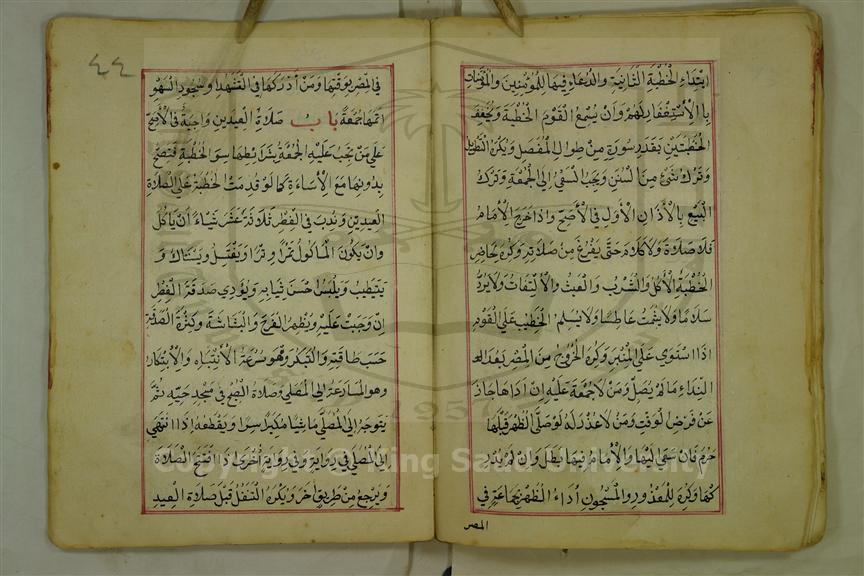 ابتداء الخطبة الثانية والدعاء فيها للمؤمنين والمؤمنات
بالاستغفار لهم وان يسمع القوم الخطبة وتخفيف
الخطبتين بقدر سورة من طوال المفصل ويكره التطويل
وترك شيء من السنن ويجب السعي الى الجمعة وترك
البيع بالأذان الأول في الأصح واذا خرج الامام
فلا صلاة ولا كلام حتى يفرغ من صلاته وكره لحاضر
الخطبة الأكل والشرب والعبث والالتفات ولا يرد
سلاما ولا يشمت عاطسا ولا يسلم الخطيب على القوم
اذا استوى على المنبر وكره الخروج من المصر بعد
النداء ما لم يصل ومن لا جمعة عليه ان اداها جاز
عن فرض الوقت ومن لا عذر له لو صلى الظهر قبلها
حرم فان سعى اليها والامام فيها بطل وان لم يدر
كها وكره للمعذور والمسجون اداء الظهر بجماعة في
المصر
٤٤
في المصر يوقتها ومن أدركها في التشهد او سجود السهو
اتمها جمعة باب صلاة العيدين واجبة في الأصح
على من تجب عليه الجمعة بشرائطها سوى الخطبة فتصح
بدونها مع الاساءة كما لو قدمت الخطبة على الصلاة
العيدين وندب في الفطر ثلاثة عشر شيئا أن ياكل
وان يكون المأكول تمرا وترا ويغتسل ويستاك و
يتطيب ويلبس احسن ثيابه ويؤدي صدقة الفطر
ان وجبت عليه ويظهر الفرح والبشاشة وكثرة الصدقة
حسب طاقته والتبكر وهو سرعة الانتباه والابتكار
وهو المسارعة الى المصلى وصلاة الصبح في مسجد حيه ثم
يتوجه الى المصلى ماشيا مكبرا سرا ويقطعه اذا انتهى
الى المصلى في رواية وفي رواية أخرى اذا افتتح الصلاة
ويرجع من طريق آخر ويكره التنفل قبل صلاة العيد
1957
Copyright © King Saud University